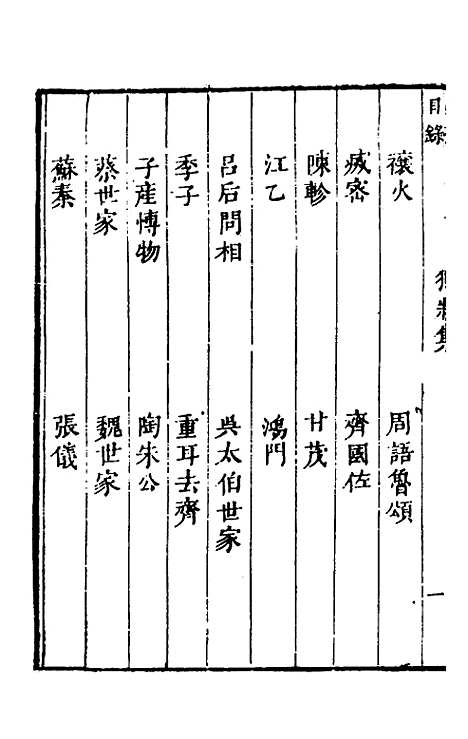 目錄
禳火 周語魯頌
臧密 齊國佐
陳軫 甘茂
江乙 鴻門
呂后問相 吳太伯世家
季子 重耳去齊
子産博物 陶朱公
蔡世家 魏世家
蘇秦 張儀